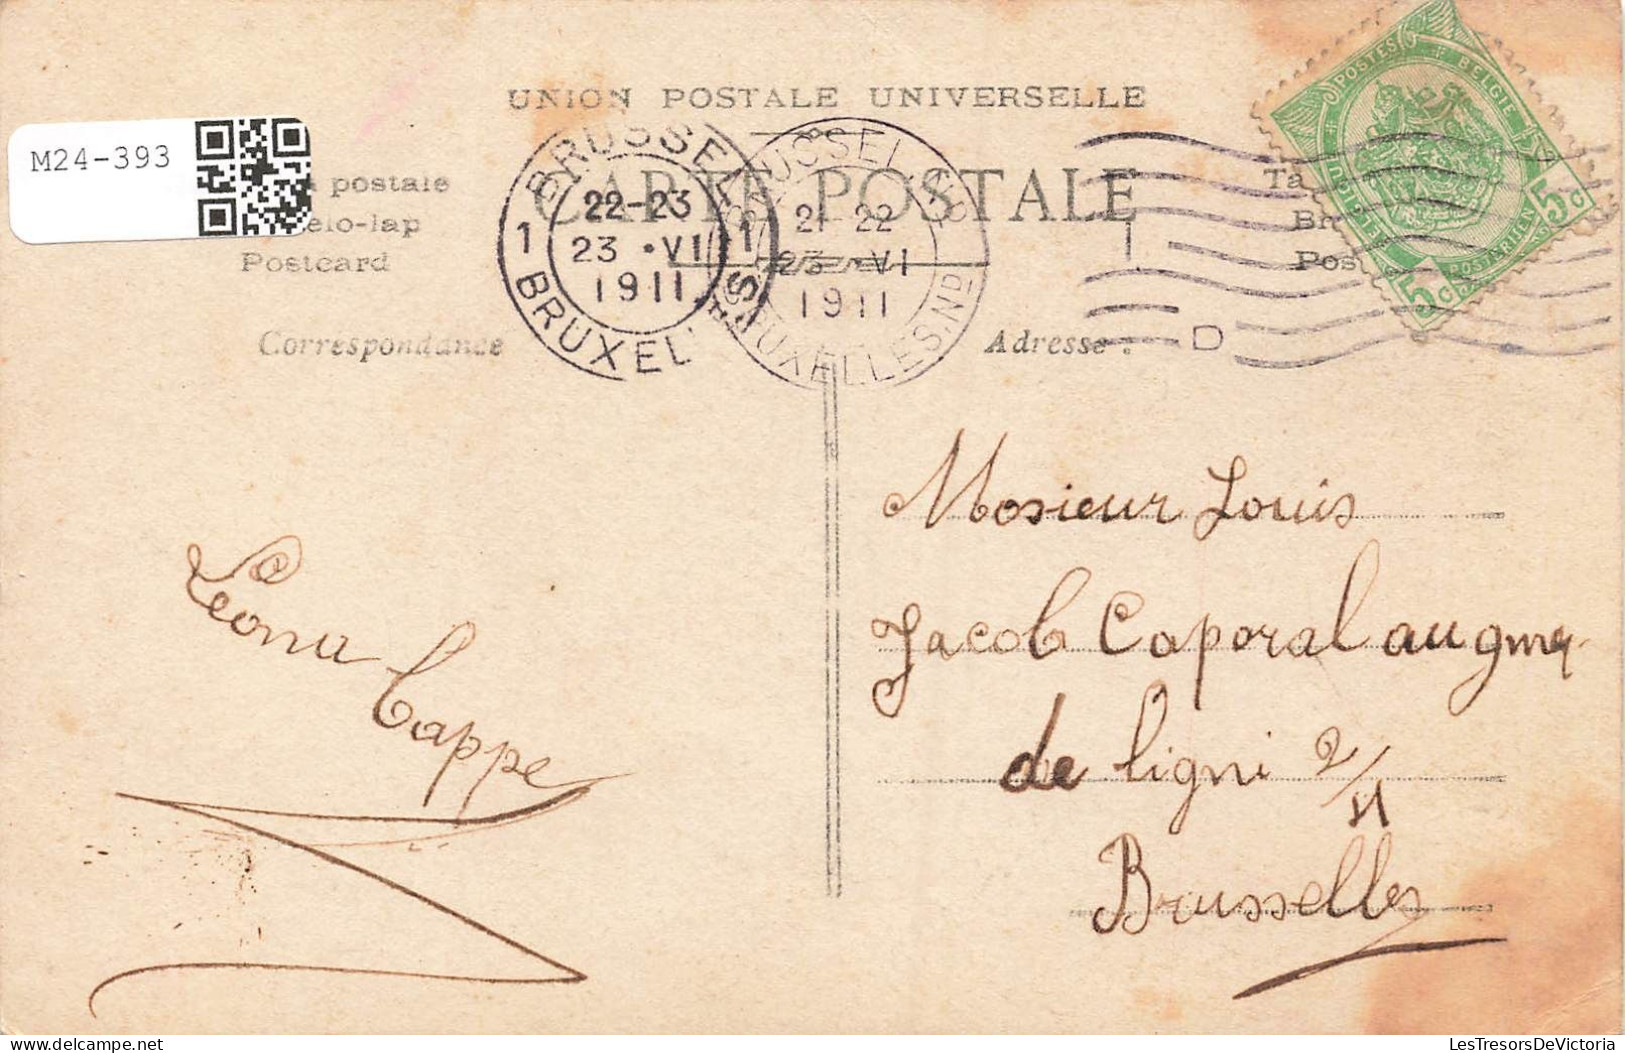 UNION POSTALE UNIVERSELLE
M24-393
CARTE POSTALE
postale
elo-lap
Postcard
Ta
Br
Pos
BRUSSEL
1 22-23 1
23 · VI
1911
BRUXEL
BRUSSEL
21 22
23 VI
1911
BRUXELLES.ND
POSTES BELGIE
POSTERIJEN
5c
5c
D
Correspondance
Adresse :
Leona Cappe
Mosieur Louis
Jacob Caporal augmr
de ligni 2/11
Brusselles
LesTresorsDeVictoria.com